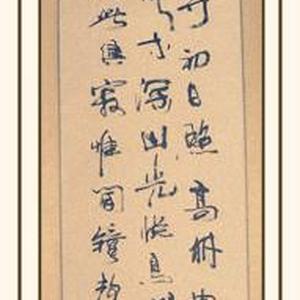 寺初日照高林
木深山光悅鳥
此俱寂惟聞鐘